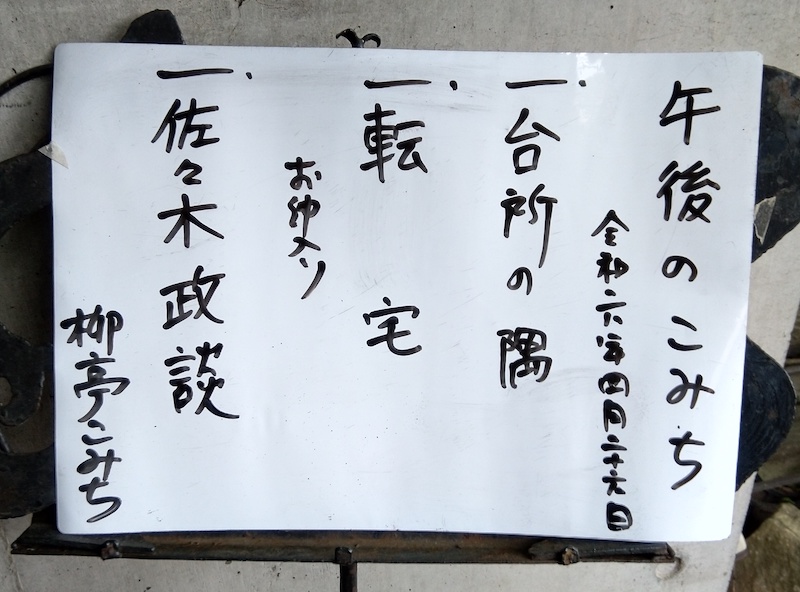 午後のこみち
令和六年四月二十六日
一、台所の隅
一、転宅
お仲入り
一、佐々木政談
柳亭こみち